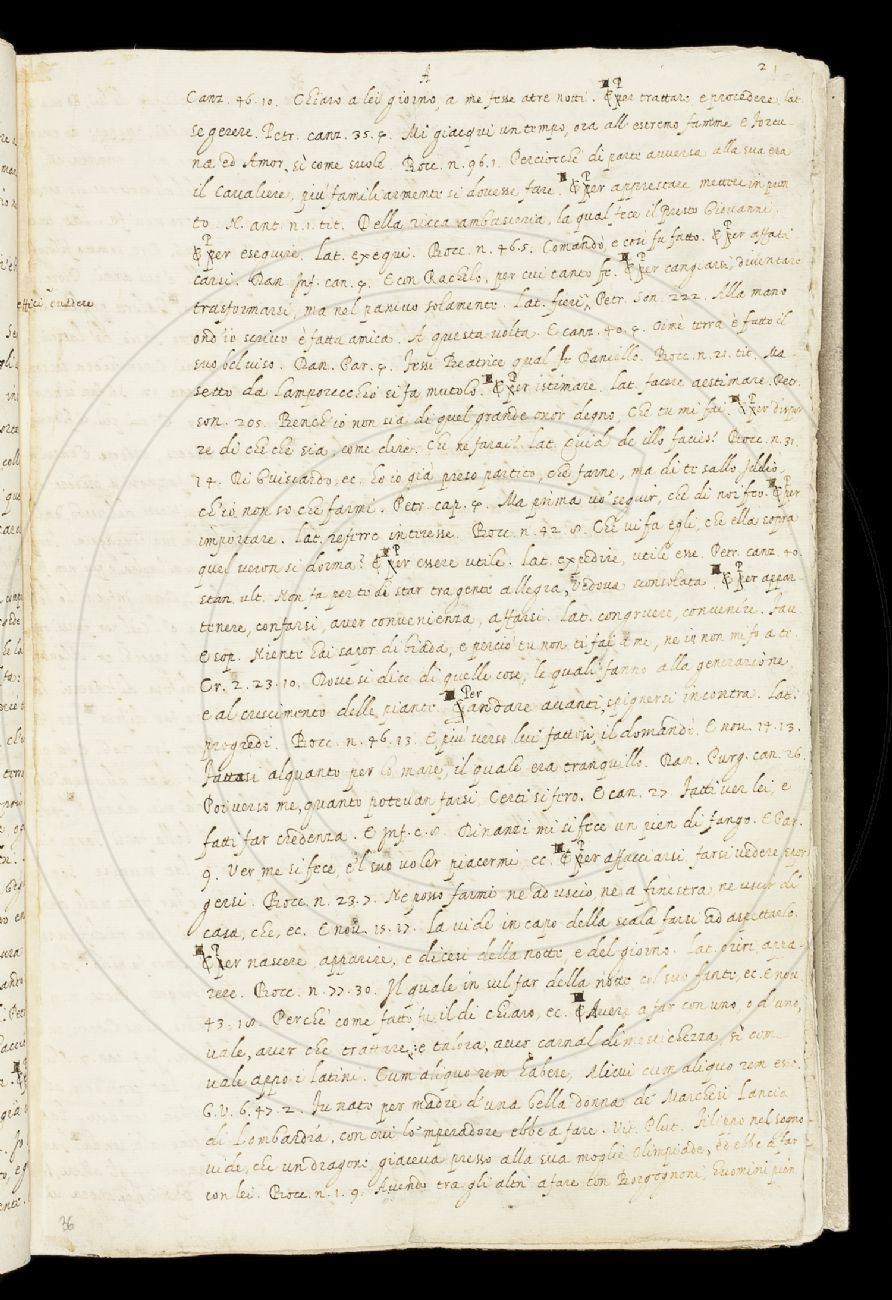 A
21
Canz. 46. 10. Chiaro a lei giorno, a me fesse atre notti. ■ P & per trattare e procedere, lat.
se gerere. Petr. canz. 35. 4. Mi giacqui un tempo, ora all' estremo famme e fortu-
na ed Amor, sì come suole. Bocc. n. 96. 1. Perciocchè di parte avversa alla sua era
il Cavaliere, più familiarmente si dovesse fare. ■ P & per apprestare mettere in pun
to. N. ant. n. 1. tit. Della ricca ambasceria, la qual fece il Presto Giovanni,
P & per eseguire, lat. exequi. Bocc. n. 46. 5. Comandò, e così fu fatto. P & per affati
carsi. Dan. Inf. can. 4. E con Rachele, per cui tanto fe. ■ P & per cangiarsi, diventare
effici, evadere
trasformarsi, ma nel passivo solamente. Lat. fieri, Petr. son. 222. Alla mano
ond' io scrivo è fatta amica. A questa volta. E canz. 40. 4. Oimè terra è fatto il
suo bel viso. Dan. Par. 4. Fessi Beatrice qual fe Daniello. Bocc. n. 21. tit. Ma-
setto da Lamporecchio si fa mutolo. ■ P & per istimare. Lat. facere aestimare. Petr.
son. 205. Bench' io non sia di quel grande onor degno, Che tu mi fai. ■ P & per dispor
re di che che sia, come dire. Che ne farai? Lat. Quid de illo facies? Bocc. n. 31.
14. Di Guiscardo, ec. ho io già preso partito, che farne, ma di te sallo Iddio,
ch'io non so che farmi. Petr. cap. 4. Ma prima vo' seguir, che di noi feo. ■ P & per
importare. Lat. referre interesse. Bocc. n. 42. 8. Che vi fa egli, che ella sopra
quel veron si dorma? ■ P & per essere utile. Lat. expedire, utile esse. Petr. canz. 40.
stan. ult. Non fa per te di star tra gente allegra, Vedova sconsolata. ■ P & per appar-
tenere, confarsi, aver convenienza, affarsi. Lat. congruere, convenire. Fav.
Esop. Niente hai sapor di biada, e perciò tu non ti fai a me, ne io non mi fo a te.
Cr. 2. 23. 10. Dove si dice di quelle cose, le quali fanno alla generazione,
e al crescimento delle piante. ■ Per & andare avanti, spignersi incontra. Lat.
progredi. Bocc. n. 46. 13. E più verso lui fattosi, il domandò. E nov. 14. 13.
Fattasi alquanto per lo mare, il quale era tranquillo. Dan. Purg. can. 26.
Poi verso me, quanto potevan farsi, Certi si fero. E can. 27. Fatti ver lei, e
fatti far credenza. E Inf. c. 8. Dinanzi mi si fece un pien di fango. E Par.
9. Ver me si fece, e'l suo voler piacermi, ec. ■ P & per affacciarsi, farsi vedere, spor
gersi. Bocc. n. 23. 7. Ne posso farmi ne ad uscio, ne a finestra ne uscir di
casa, che, ec. E nov. 15. 17. La vide in capo della scala farsi ad aspettarlo.
■ P & per nascere, apparire, e dicesi della notte, e del giorno. Lat. oriri, appa-
rere. Bocc. n. 77. 30. Il quale in sul far della notte col suo fante, ec. E nov.
43. 18. Perchè come fatto fu il di chiaro, ec. ■ & Avere a far con uno, o d'uno,
vale, aver che trattare; e talora, aver carnal dimestichezza, sì come
vale appo i Latini. Cum aliquo rem habere, Alicui cum aliquo rem esse.
G. V. 6. 47. 2. Fu nato per madre d'una bella donna de' Marchesi Lancia
di Lombardia, con cui lo 'mperadore ebbe a fare. Vit. Plut. Filippo nel sogno
vide, che un dragone giaceva presso alla sua moglie Olimpiade, ed ebbe a far
con lei. Bocc. n. 1. 9. Avendo tra gli altri a fare con Borgognoni, huomini pien
36